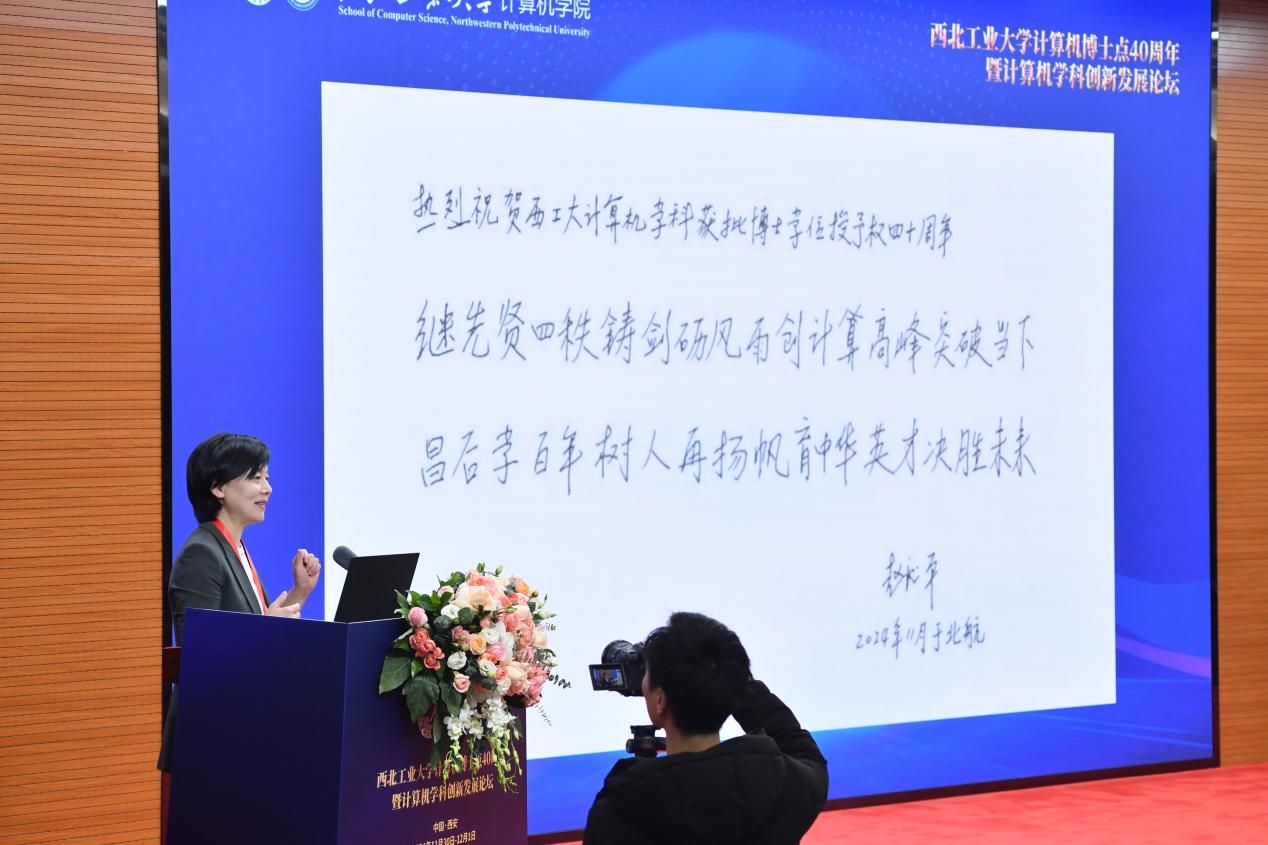 计算机学院
School of Computer Science, Northwestern Polytechnical University
西北工业大学计算机博士点40周年
暨计算机学科创新发展论坛
热烈祝贺西工大计算机学科获批博士学位授予权四十周年
继先贤四秩铸剑砺风雨创计算高峰突破当下
昌后学百年树人再扬帆育中华英才决胜未来
2024年11月于北航
西北工业大学计算机博士点40
暨计算机学科创新发展论坛
中国·西安
年11月30日-12月1日